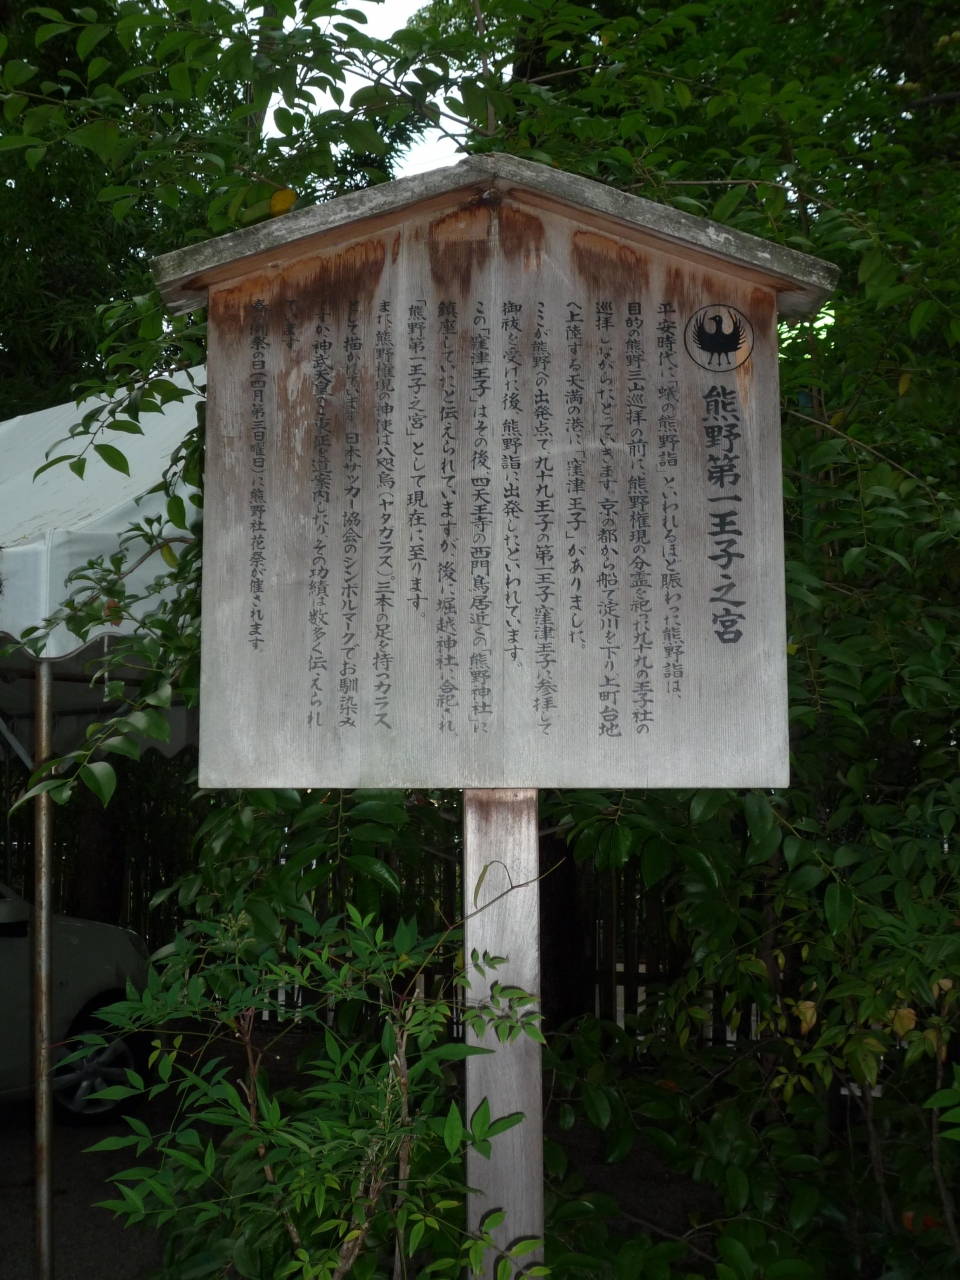 熊野第一王子之宮
平安時代に「蟻の熊野詣」といわれるほど賑わった熊野詣は、
目的の熊野三山巡拝の前に、熊野権現の分霊を祀った九十九の王子社の
巡拝しながらたどっていきます。京の都から船で淀川を下り、上町台地
へ上陸する天満の港に「窪津王子」がありました。
ここが熊野への出発点で、九十九王子の第一王子・窪津王子に参拝して
御祓を受けた後、熊野詣に出発したといわれています。
この「窪津王子」はその後、四天王寺の西門鳥居近くの「熊野神社」に
鎮座していたと伝えられていますが、後に堀越神社に合祀され、
「熊野第一王子之宮」として現在に至ります。
また、熊野権現の神使は八咫烏（ヤタカラス）。三本の足を持つカラス
として描かれています。日本サッカー協会のシンボルマークでお馴染み
ですが、神武天皇の東征を道案内したり、その功績は数多く伝えられ
ています。
春例祭の日（四月第三日曜日）に熊野社花祭が催されます。